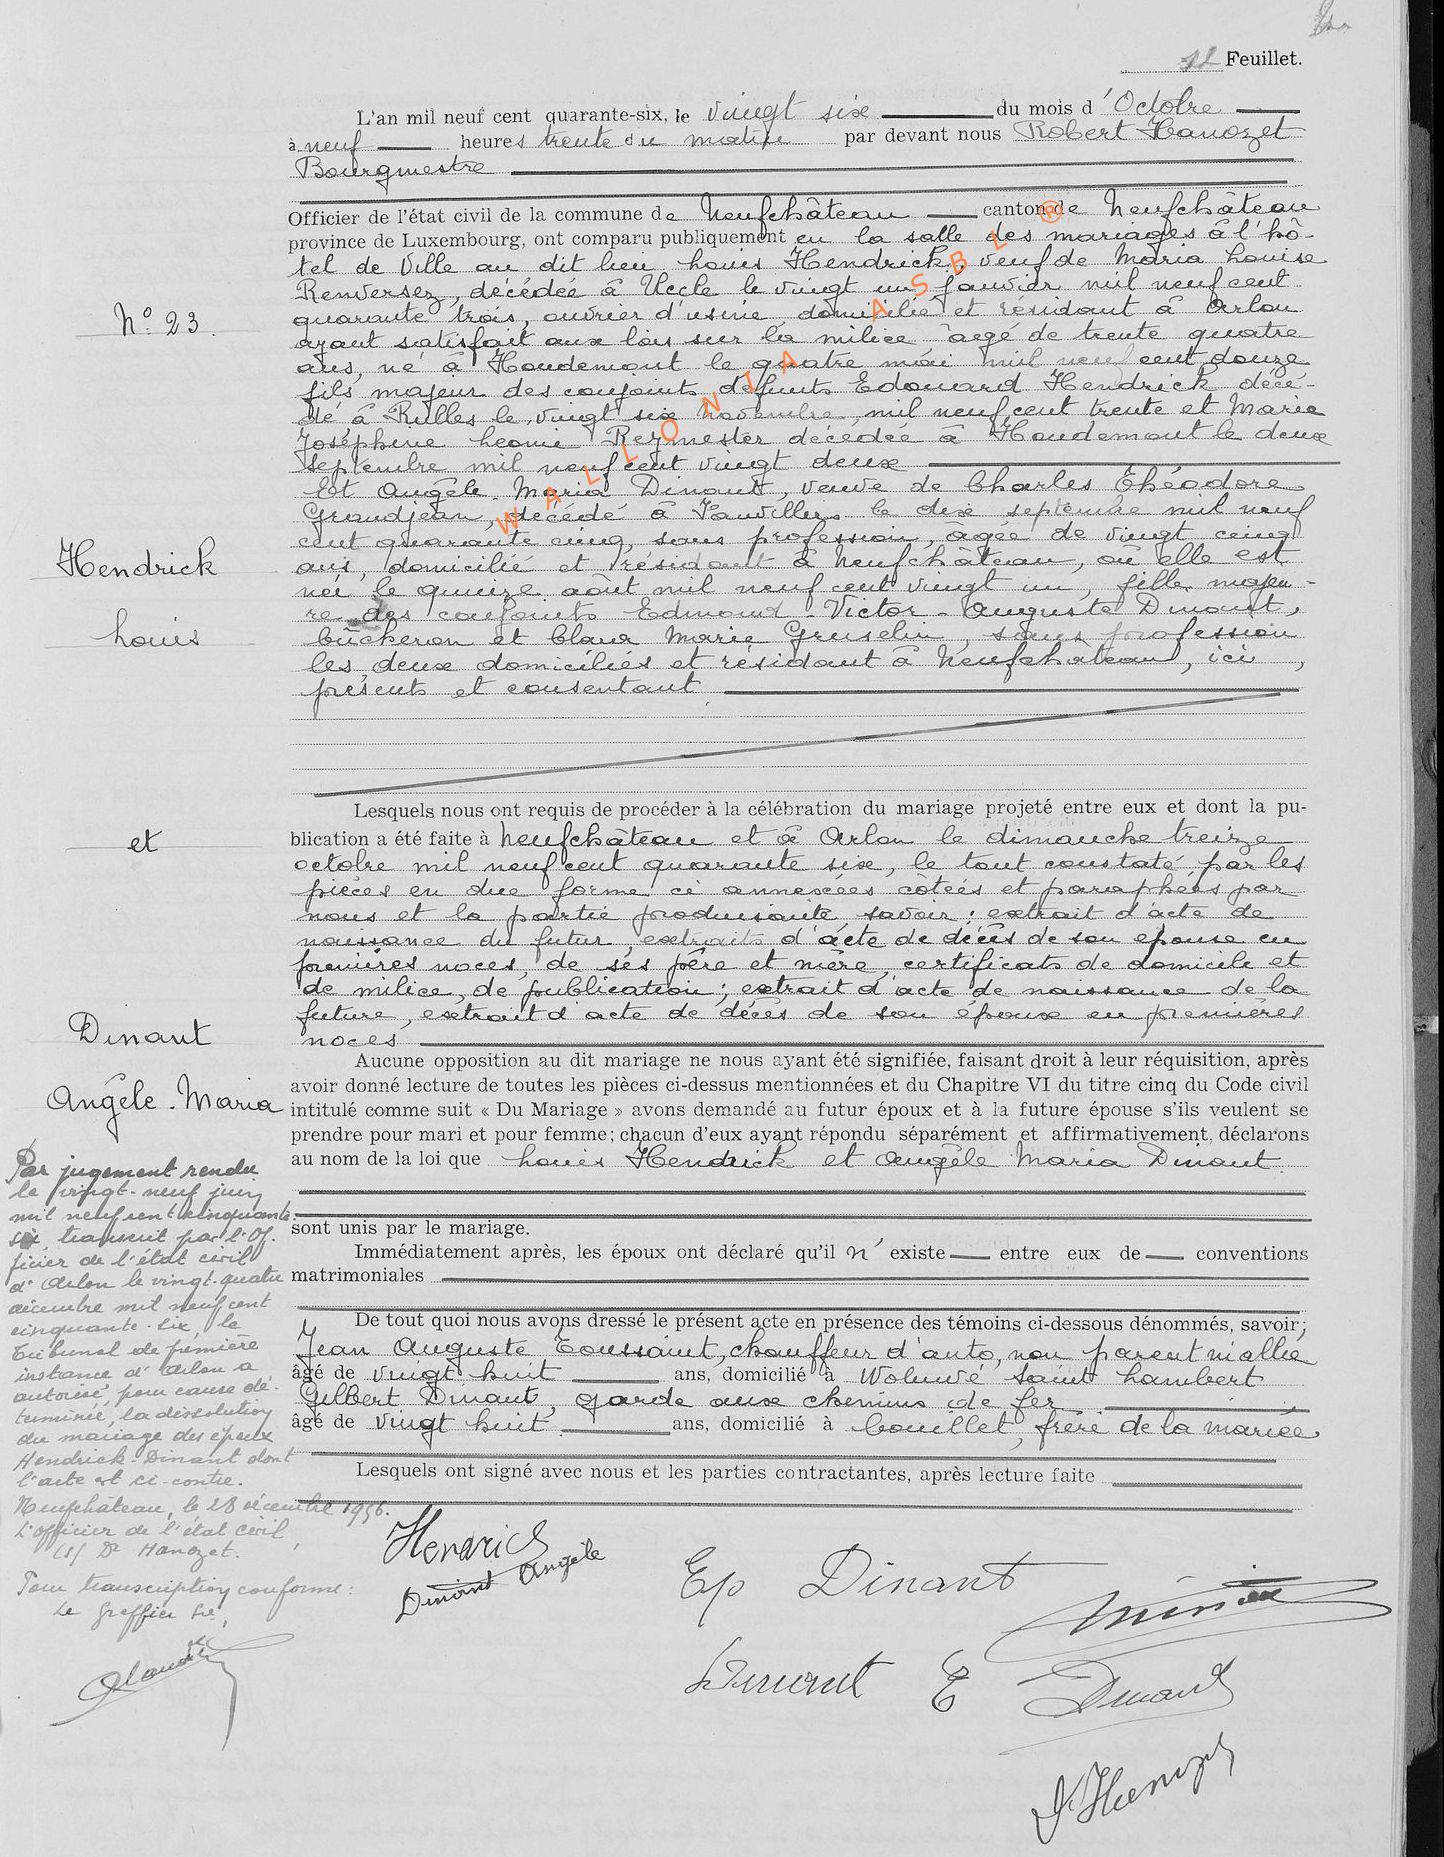 12 Feuillet.
L'an mil neuf cent quarante-six, le vingt six du mois d'Octobre
à neuf heures trente du matin par devant nous Robert Hanozet
Bourgmestre
Officier de l'état civil de la commune de Neufchâteau canton de Neufchâteau
province de Luxembourg, ont comparu publiquement en la salle des mariages à l'hô-
tel de Ville au dit lieu Louis Hendrick, veuf de Maria Louise
Renversez, décédée à Uccle le vingt un janvier mil neuf cent
quarante trois, ouvrier d'usine domicilié et résidant à Arlon
ayant satisfait aux lois sur la milice âgé de trente quatre
ans, né à Houdemont le quatre mai mil neuf cent douze
fils majeur des conjoints défunts Edouard Hendrick décé-
dé à Rulles le vingt six novembre mil neuf cent trente et Marie
Joséphine Léonie Reymester décédée à Houdemont le deux
septembre mil neuf cent vingt deux
Et Angèle Maria Dinant, veuve de Charles Théodore
Grandjean, décédé à Fauvillers le dix septembre mil neuf
cent quarante cinq, sans profession, âgée de vingt cinq
ans, domicilié et résidant à Neufchâteau, où elle est
née le quinze août mil neuf cent vingt un, fille majeu-
re des conjoints Edmond - Victor - Auguste Dinant,
bûcheron et Clara Marie Gruselin, sans profession
les deux domiciliés et résidant à Neufchâteau, ici,
présents et consentant
Nº 23.
Hendrick
Louis
et
Dinant
Angèle. Maria
Lesquels nous ont requis de procéder à la célébration du mariage projeté entre eux et dont la pu-
blication a été faite à Neufchâteau et à Arlon le dimanche treize
octobre mil neuf cent quarante six, le tout constaté par les
pièces en due forme ci annexées côtées et paraphées par
nous et la partie produisante savoir : extrait d'acte de
naissance du futur, extraits d'acte de décès de son épouse en
premières noces, de ses père et mère, certificats de domicile et
de milice, de publication ; extrait d'acte de naissance de la
future, extrait d'acte de décès de son époux en premières
noces
Aucune opposition au dit mariage ne nous ayant été signifiée, faisant droit à leur réquisition, après
avoir donné lecture de toutes les pièces ci-dessus mentionnées et du Chapitre VI du titre cinq du Code civil
intitulé comme suit « Du Mariage » avons demandé au futur époux et à la future épouse s'ils veulent se
prendre pour mari et pour femme ; chacun d'eux ayant répondu séparément et affirmativement, déclarons
au nom de la loi que Louis Hendrick et Angèle Maria Dinant
sont unis par le mariage.
Immédiatement après, les époux ont déclaré qu'il n'existe entre eux de conventions
matrimoniales
De tout quoi nous avons dressé le présent acte en présence des témoins ci-dessous dénommés, savoir ;
Jean Auguste Toussaint, chauffeur d'auto, non parent ni allié
âgé de vingt huit ans, domicilié à Woluwé Saint Lambert
Gilbert Dinant, garde aux chemins de fer
âgé de vingt huit ans, domicilié à Couillet, frère de la mariée
Lesquels ont signé avec nous et les parties contractantes, après lecture faite
Par jugement rendu
le vingt-neuf juin
mil neuf cent cinquante-
six, transcrit par l'Of-
ficier de l'état civil
d'Arlon le vingt-quatre
décembre mil neuf cent
cinquante-six, le
Tribunal de première
instance d'Arlon a
autorisé, pour cause dé-
terminée, la dissolution
du mariage des époux
Hendrick-Dinant dont
l'acte est ci-contre.
Neufchâteau, le 28 décembre 1956.
L'officier de l'état civil,
(s) Dr Hanozet.
Pour transcription conforme :
Le Greffier
Hendrick
Dinant Angèle
Ep Dinant
Dinant E
Dinant
WALLONIA ASBL ®